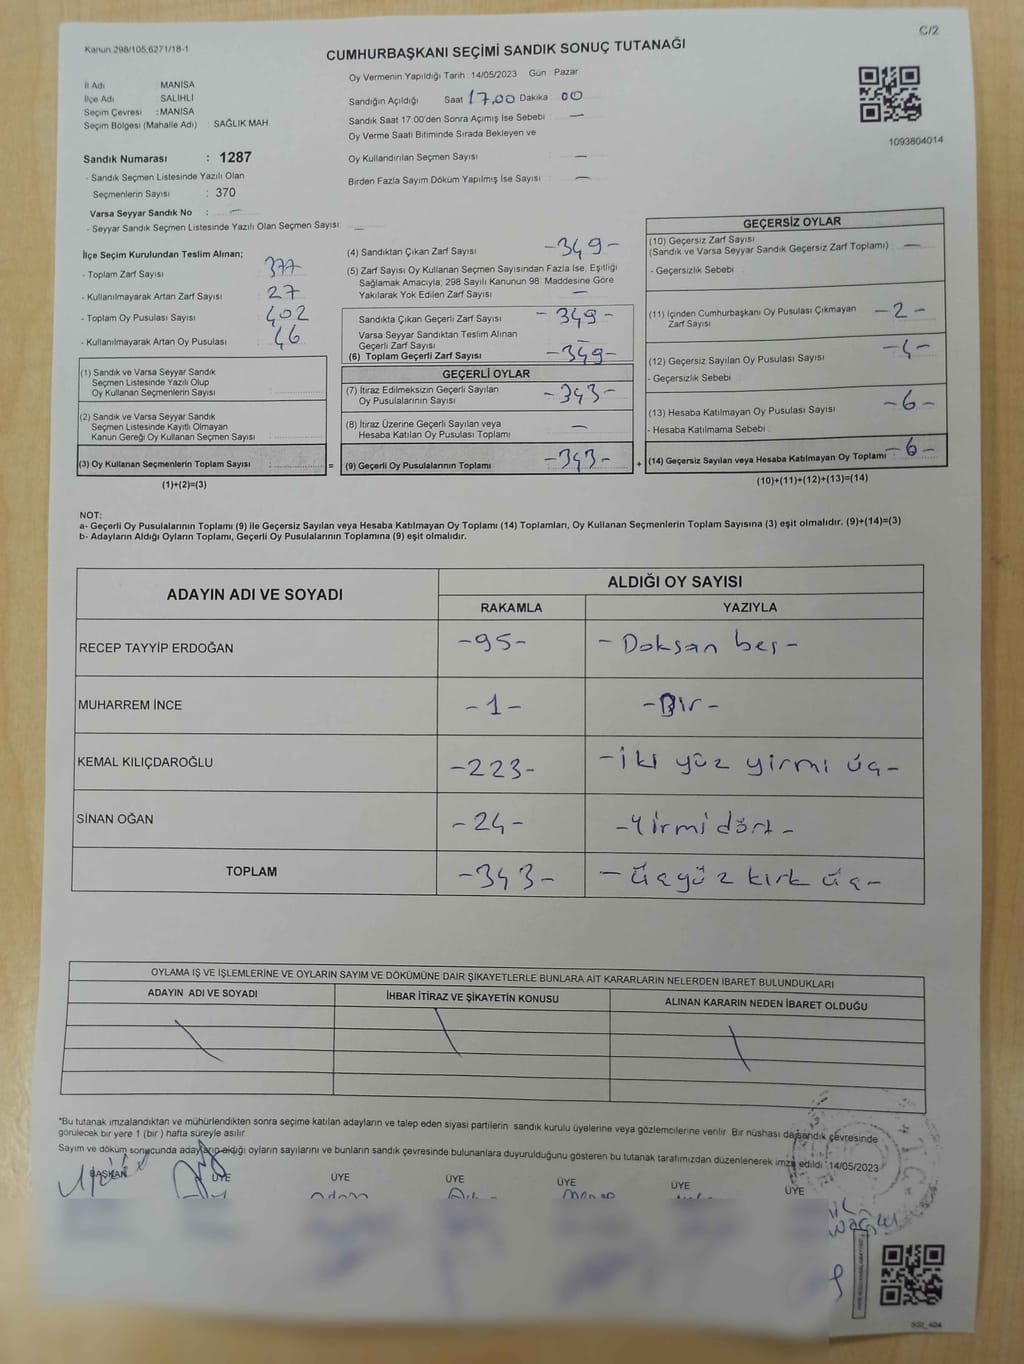 Kanun 298/105,6271/18-1
C/2
CUMHURBAŞKANI SEÇİMİ SANDIK SONUÇ TUTANAĞI
İl Adı MANİSA
İlçe Adı SALİHLİ
Seçim Çevresi : MANİSA
Seçim Bölgesi (Mahalle Adı) SAĞLIK MAH.
Sandık Numarası : 1287
- Sandık Seçmen Listesinde Yazılı Olan
Seçmenlerin Sayısı : 370
Varsa Seyyar Sandık No : —
- Seyyar Sandık Seçmen Listesinde Yazılı Olan Seçmen Sayısı: —
Oy Vermenin Yapıldığı Tarih : 14/05/2023 Gün : Pazar
Sandığın Açıldığı Saat 17.00 Dakika 00
Sandık Saat 17.00'den Sonra Açımış İse Sebebi —
Oy Verme Saati Bitiminde Sırada Bekleyen ve
Oy Kullandırılan Seçmen Sayısı —
Birden Fazla Sayım Döküm Yapılmış İse Sayısı —
1093804014
İlçe Seçim Kurulundan Teslim Alınan;
- Toplam Zarf Sayısı : 377
- Kullanılmayarak Artan Zarf Sayısı : 27
- Toplam Oy Pusulası Sayısı : 402
- Kullanılmayarak Artan Oy Pusulası : 46
(1) Sandık ve Varsa Seyyar Sandık
Seçmen Listesinde Yazılı Olup
Oy Kullanan Seçmenlerin Sayısı
(2) Sandık ve Varsa Seyyar Sandık
Seçmen Listesinde Kayıtlı Olmayan
Kanun Gereği Oy Kullanan Seçmen Sayısı
(3) Oy Kullanan Seçmenlerin Toplam Sayısı :
(1)+(2)=(3)
(4) Sandıktan Çıkan Zarf Sayısı -349-
(5) Zarf Sayısı Oy Kullanan Seçmen Sayısından Fazla İse, Eşitliği
Sağlamak Amacıyla, 298 Sayılı Kanunun 98. Maddesine Göre
Yakılarak Yok Edilen Zarf Sayısı —
Sandıkta Çıkan Geçerli Zarf Sayısı -349-
Varsa Seyyar Sandıktan Teslim Alınan
Geçerli Zarf Sayısı —
(6) Toplam Geçerli Zarf Sayısı -349-
GEÇERLİ OYLAR
(7) İtiraz Edilmeksizin Geçerli Sayılan
Oy Pusulalarının Sayısı -343-
(8) İtiraz Üzerine Geçerli Sayılan veya
Hesaba Katılan Oy Pusulası Toplamı —
= (9) Geçerli Oy Pusulalarının Toplamı -343- +
GEÇERSİZ OYLAR
(10) Geçersiz Zarf Sayısı
(Sandık ve Varsa Seyyar Sandık Geçersiz Zarf Toplamı) —
- Geçersizlik Sebebi
(11) İçinden Cumhurbaşkanı Oy Pusulası Çıkmayan
Zarf Sayısı -2-
(12) Geçersiz Sayılan Oy Pusulası Sayısı -4-
- Geçersizlik Sebebi
(13) Hesaba Katılmayan Oy Pusulası Sayısı -6-
- Hesaba Katılmama Sebebi
(14) Geçersiz Sayılan veya Hesaba Katılmayan Oy Toplamı -6-
(10)+(11)+(12)+(13)=(14)
NOT:
a- Geçerli Oy Pusulalarının Toplamı (9) ile Geçersiz Sayılan veya Hesaba Katılmayan Oy Toplamı (14) Toplamları, Oy Kullanan Seçmenlerin Toplam Sayısına (3) eşit olmalıdır. (9)+(14)=(3)
b- Adayların Aldığı Oyların Toplamı, Geçerli Oy Pusulalarının Toplamına (9) eşit olmalıdır.
ADAYIN ADI VE SOYADI
ALDIĞI OY SAYISI
RAKAMLA YAZIYLA
RECEP TAYYİP ERDOĞAN -95- - Doksan beş -
MUHARREM İNCE -1- -Bir-
KEMAL KILIÇDAROĞLU -223- -iki yüz yirmi üç-
SİNAN OĞAN -24- -Yirmi dört-
TOPLAM -343- - üçyüz kırk üç-
OYLAMA İŞ VE İŞLEMLERİNE VE OYLARIN SAYIM VE DÖKÜMÜNE DAİR ŞİKAYETLERLE BUNLARA AİT KARARLARIN NELERDEN İBARET BULUNDUKLARI
ADAYIN ADI VE SOYADI İHBAR İTİRAZ VE ŞİKAYETİN KONUSU ALINAN KARARIN NEDEN İBARET OLDUĞU
*Bu tutanak imzalandıktan ve mühürlendikten sonra seçime katılan adayların ve talep eden siyasi partilerin sandık kurulu üyelerine veya gözlemcilerine verilir. Bir nüshası da sandık çevresinde
görülecek bir yere 1 (bir) hafta süreyle asılır.
Sayım ve döküm sonucunda adayların aldığı oyların sayılarını ve bunların sandık çevresinde bulunanlara duyurulduğunu gösteren bu tutanak tarafımızdan düzenlenerek imza edildi. 14/05/2023
BAŞKAN ÜYE ÜYE ÜYE ÜYE ÜYE ÜYE